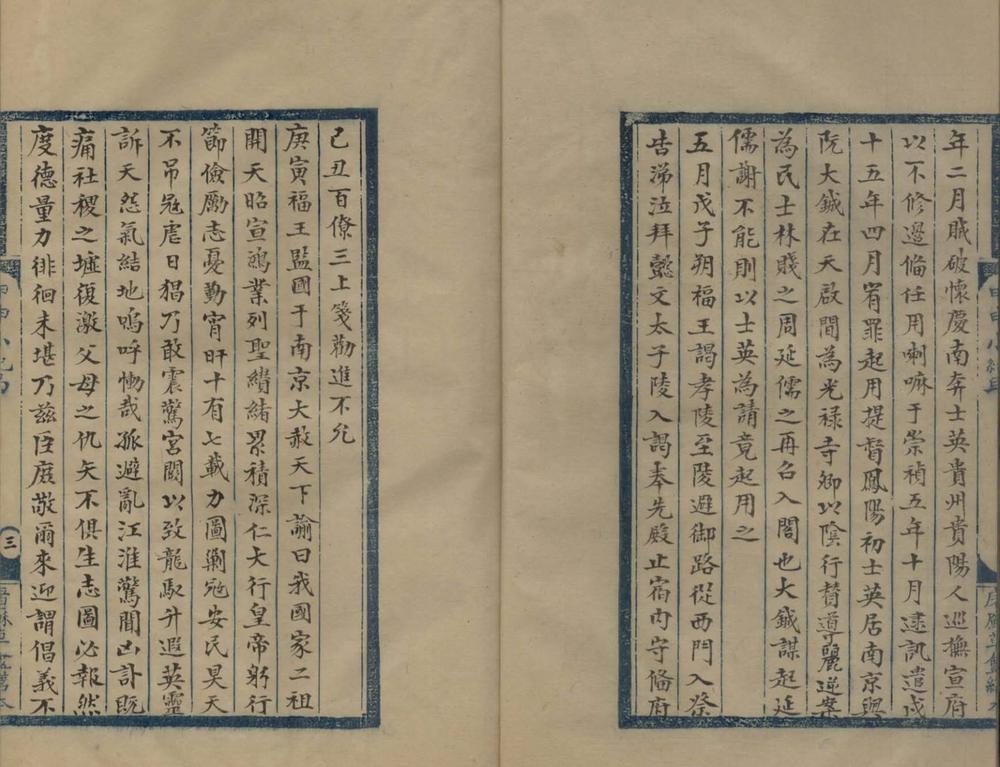 年二月賊破懷慶南奔士英貴州貴陽人巡撫宣府
以不修邊俻任用喇嘛于崇禎五年十月逮訊遣戍
十五年四月宥罪起用提督鳳陽初士英居南京與
阮大鋮在天啟間為光禄寺卿以陰行賛導麗逆案
為民士林賤之周延儒之再召入閣也大鋮謀起延
儒謝不能則以士英為請竟起用之
五月戊子朔福王謁孝陵至陵避御路從西門入祭
告涕泣拜懿文太子陵入謁奉先殿止宿内守俻府
己丑百僚三上箋勸進不允
庚寅福王監國于南京大赦天下諭曰我國家二祖
開天昭宣鴻業列聖纘緒累積深仁大行皇帝躬行
節儉勵志憂勤宵旰十有七載力圖剿寇安民昊天
不吊寇虐日猖乃敢震驚宮闕以致龍馭升遐英靈
訴天怨氣結地嗚呼慟哉孤避亂江淮驚聞凶訃既
痛社稷之墟復激父母之仇矢不俱生志圖必報然
度德量力徘徊未堪乃兹臣庶敬爾來迎謂倡義不
三